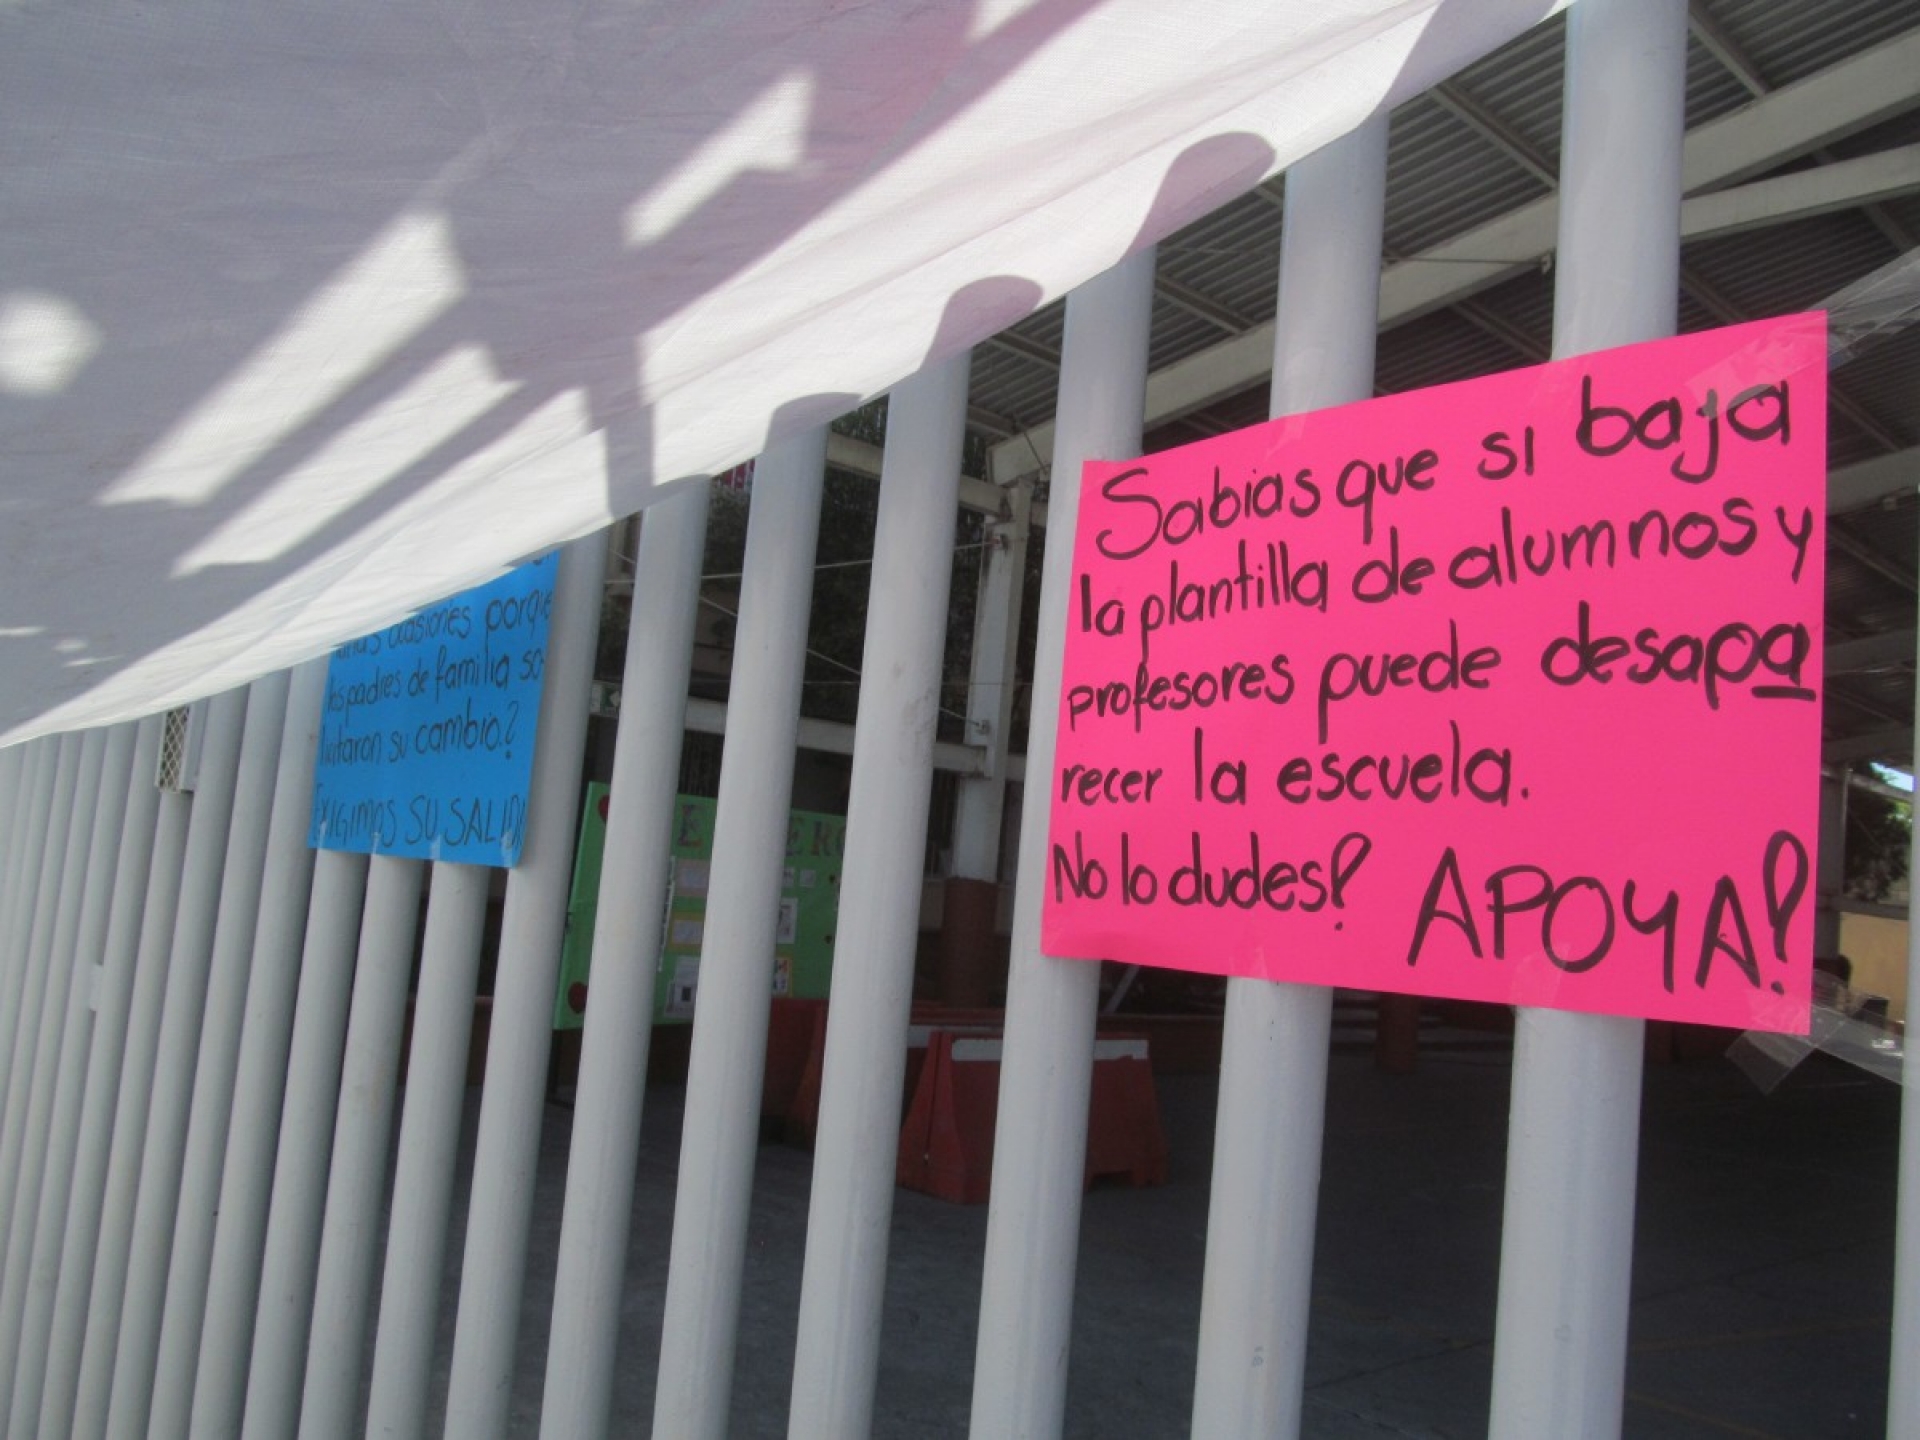 ocasiones porque
los padres de familia so-
licitaron su cambio.?
EXIGIMOS SU SALIDA
Sabias que si baja
la plantilla de alumnos y
profesores puede desapa
recer la escuela.
No lo dudes! APOYA!